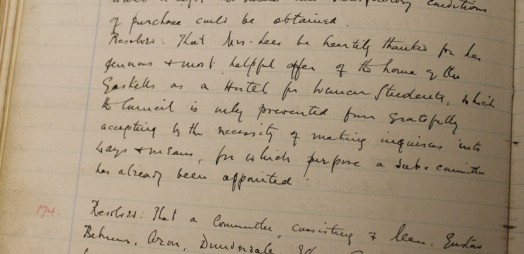 conditions
of purchase could be obtained.
Resolved: That Mrs. Lees be heartily thanked for her
generous & most helpful offer of the home of the
Gaskells as a Hostel for Women Students, which
the Council is only prevented from gratefully
accepting by the necessity of making inquiries into
ways & means, for which purpose a Sub-committee
has already been appointed.
174. Resolved: That a Committee, consisting of
Behrens, Aron,